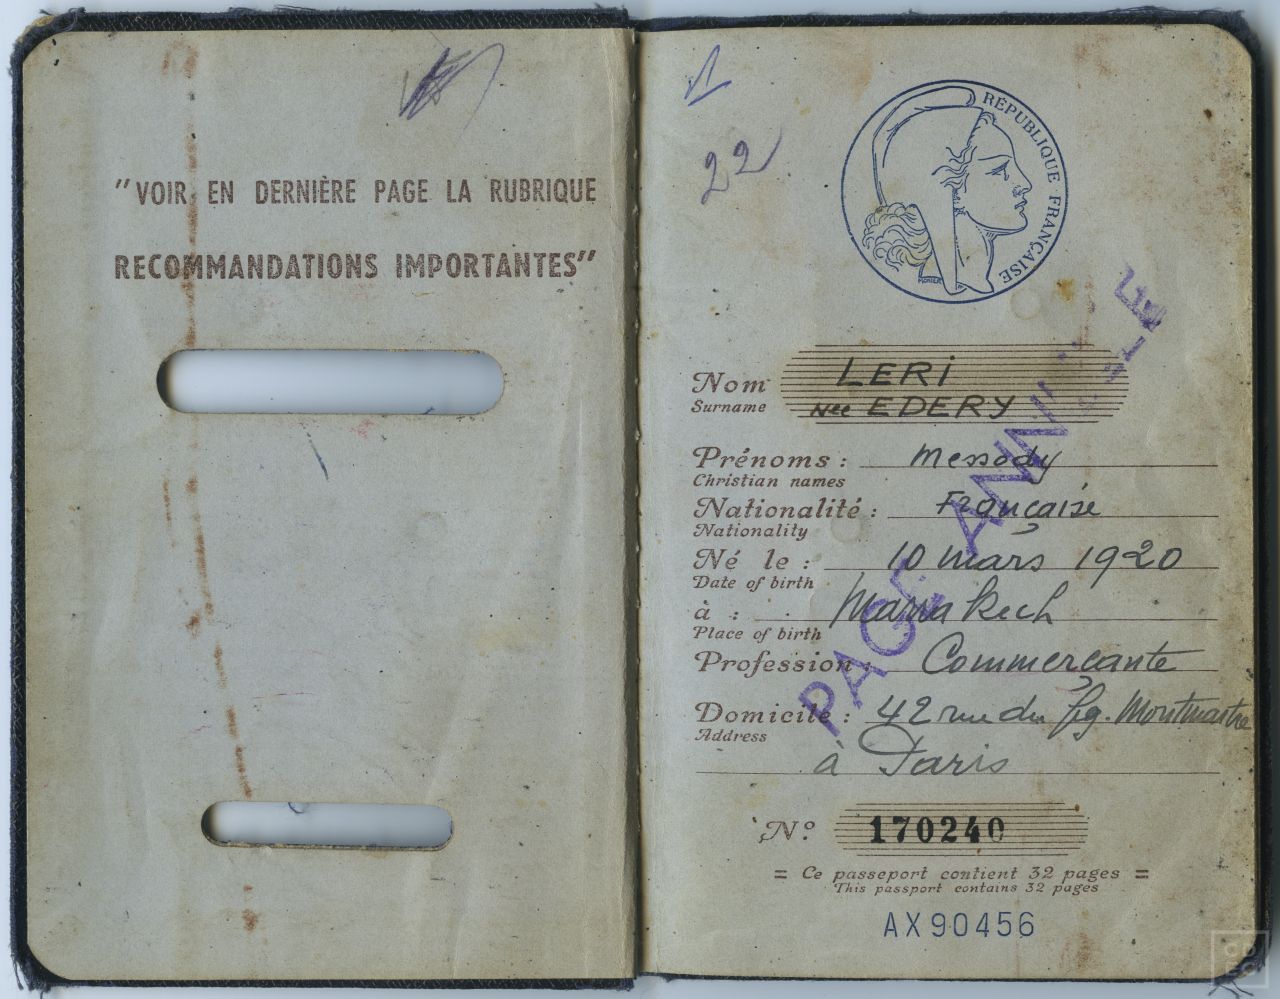 "VOIR EN DERNIÈRE PAGE LA RUBRIQUE
RECOMMANDATIONS IMPORTANTES"
22
RÉPUBLIQUE FRANÇAISE
Nom LERI
Surname née EDERY
Prénoms : Messody
Christian names
Nationalité : Française
Nationality
Né le : 10 mars 1920
Date of birth
à : Marrakech
Place of birth
Profession : Commerçante
Domicile : 42 rue du fg. Montmartre
Address
à Paris
PAGE ANNULÉE
N° 170240
= Ce passeport contient 32 pages =
This passport contains 32 pages
AX90456